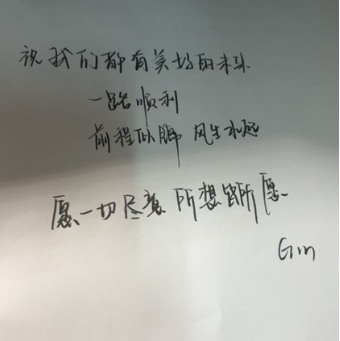 祝我们都有美好的未来
一路顺利
前程似锦 风生水起
愿一切尽意 所想皆所愿
Gin